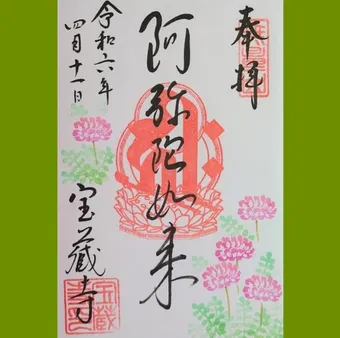 奉拝
阿弥陀如来
令和六年
四月十一日
宝蔵寺